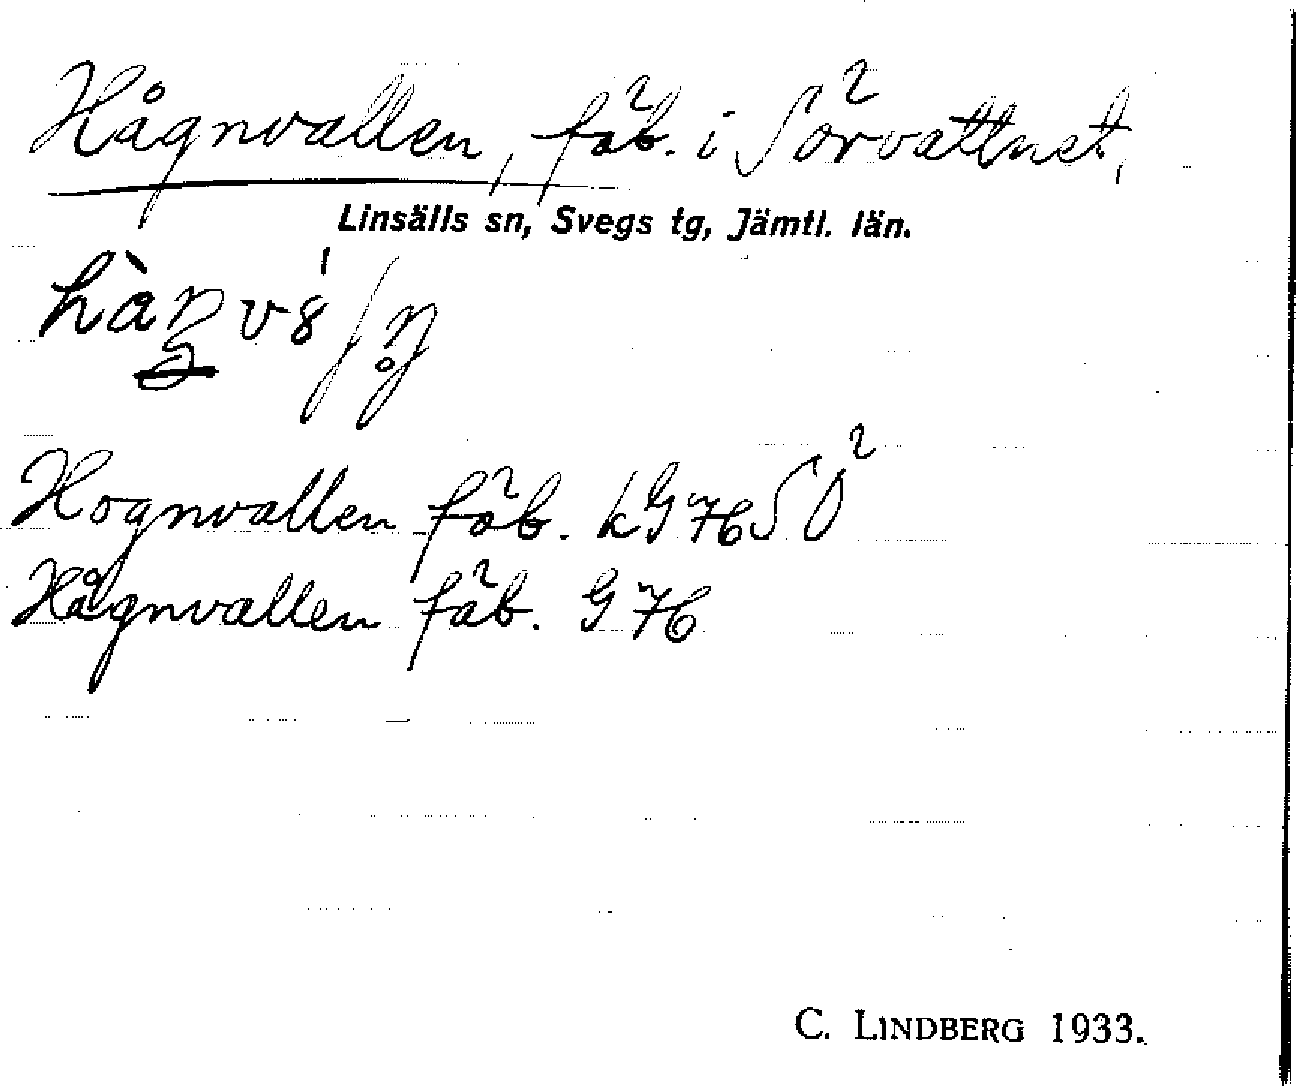 Hågnvallen, fäb. i Sörvattnet,
Linsälls sn, Svegs tg, Jämtl. län.
Hognvallen fäb. kG76SÖ
Hågnvallen fäb. G76
C. LINDBERG 1933.